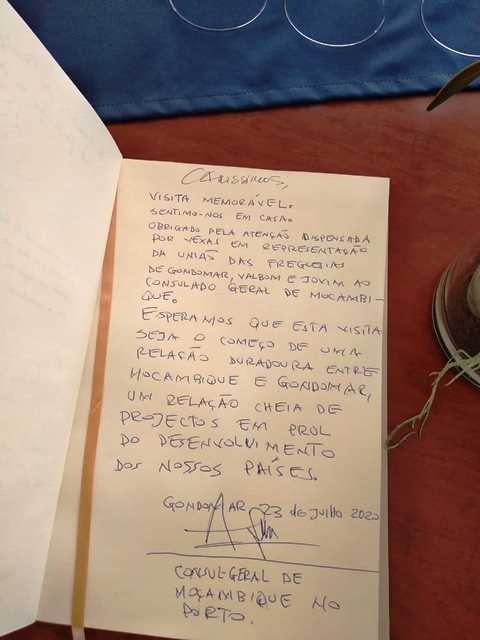 Caríssimos,
VISITA MEMORÁVEL.
SENTIMO-NOS EM CASA.
OBRIGADO PELA ATENÇÃO DISPENSADA
POR VEXAS EM REPRESENTAÇÃO
DA UNIÃO DAS FREGUEIAS
DE GONDOMAR, VALBOM E JOVIM AO
CONSULADO GERAL DE MOCAMBI-
QUE.
ESPERAMOS QUE ESTA VISITA
SEJA O COMEÇO DE UMA
RELAÇÃO DURADOURA ENTRE
MOCAMBIQUE E GONDOMAR,
UM RELAÇÃO CHEIA DE
PROJECTOS EM PROL
DO DESENVOLVIMENTO
DOS NOSSOS PAÍSES.
GONDOMAR, 23 de Julho 2020
CONSUL-GERAL DE
MOÇAMBIQUE NO
PORTO.